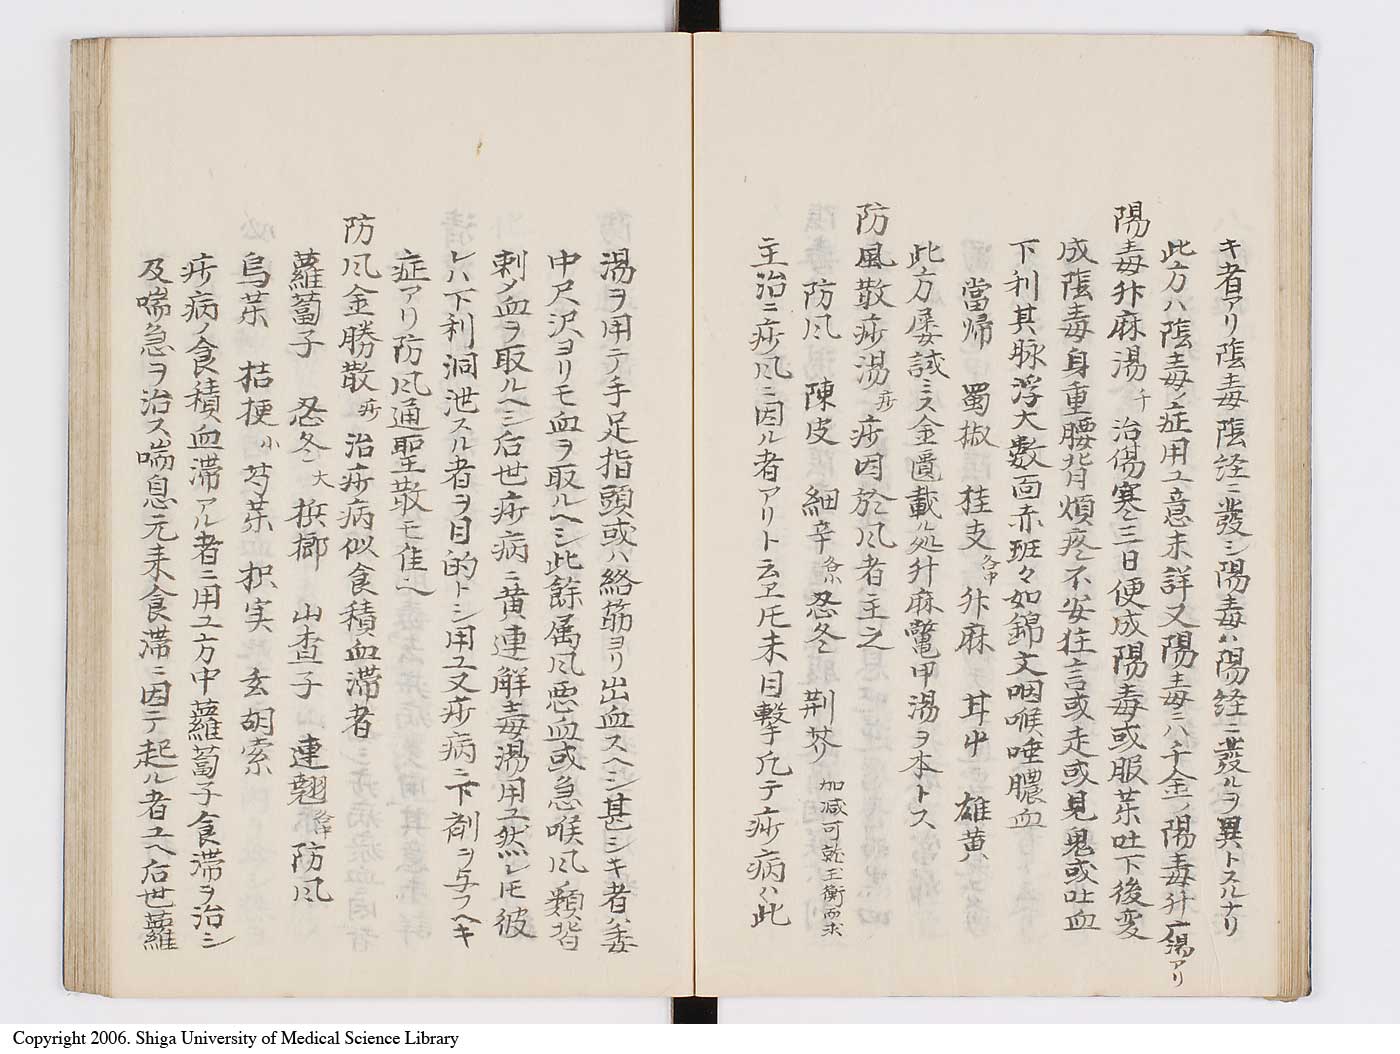 キ者アリ陰毒陰経ニ發シ陽毒ハ陽経ニ發ルヲ異トスルナリ
此方ハ陰毒ノ症用ユ意未詳又陽毒ニハ千金ノ陽毒升麻湯アリ
陽毒升麻湯 千 治傷寒一二日便成陽毒或服薬吐下後変
成陰毒身重腰背煩疼不安狂言或走或見鬼或吐血
下利其脉浮大数面赤班々如錦文咽喉唾膿血
當帰 蜀椒 桂支 各中 升麻 甘中 雄黄
此方屡試ミス金匱載ル処升麻鼈甲湯ヲ本トス
防風散痧湯 痧 痧因於风者主之
防风 陳皮 細辛 各小 忍冬 荊芥 加减可乾玉衡要求
主治ニ痧风ニ因ル者アリト云ヱ𪜈未目撃凡テ痧病ハ此
湯ヲ用テ手足指頭或ハ絡筋ヨリ出血スヘシ甚シキ者ハ委
中尺沢ヨリモ血ヲ取ルヘシ此餘属风悪血或急喉风類皆
刺メ血ヲ取ルヘシ后世痧病ニ黄連解毒湯用ユ然レ𪜈彼
レハ下利洞泄スル者ヲ目的トシ用ユ又痧病ニ下剤ヲ与フヘキ
症アリ防风通聖散モ隹ヘ
防风金勝散 痧 治痧病似食積血滞者
蘿蔔子 忍冬 大 梹榔 山査子 連翹 各中 防风
烏薬 桔梗 小 芍薬 枳実 玄胡索
痧病ノ食積血滞アル者ニ用ユ方中蘿蔔子食滞ヲ治シ
及喘急ヲ治ス喘息元来食滞ニ因テ起ル者ユヘ后世蘿
Copyright 2006. Shiga University of Medical Science Library